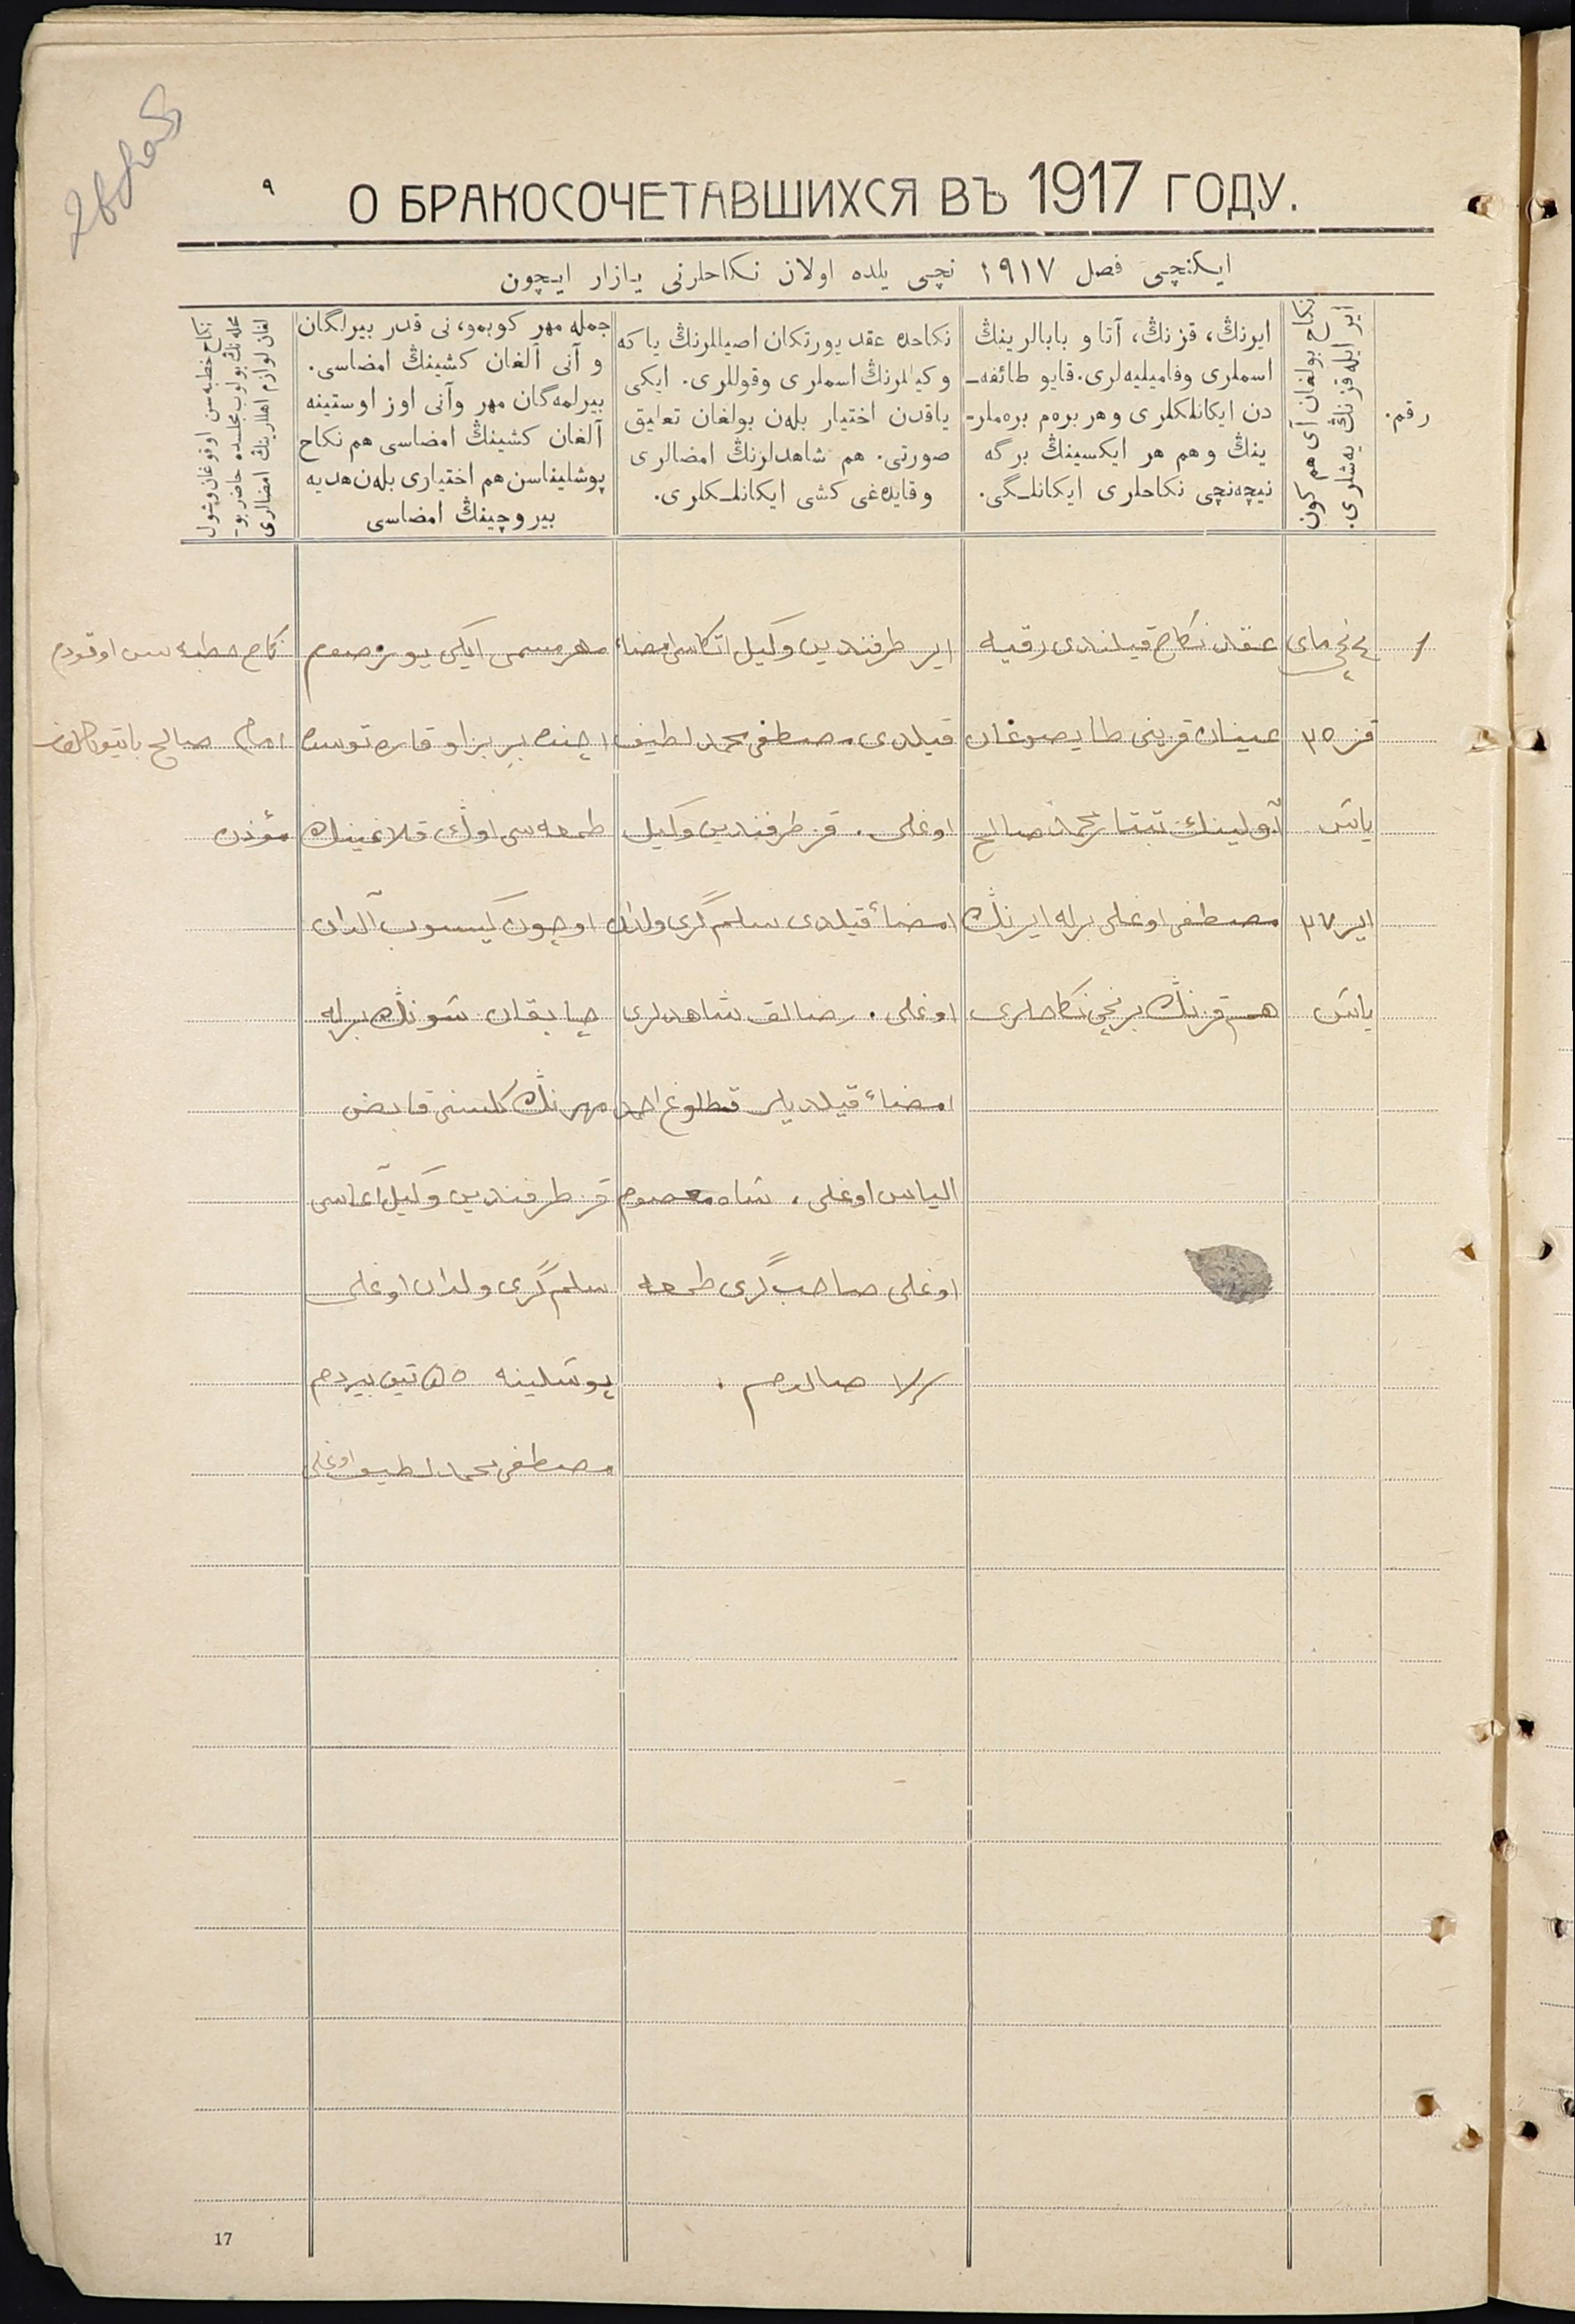 О БРАКОСОЧЕТАВШИХСЯ ВЪ 1917 ГОДУ.
٩
ایکنچی فصل ١٩١٧ نچی یلده اولان نکاحلرنی یازار ایچون
رقم.
نکاح بولغان آی هم کون
ایر ایله قزنڭ یه‌شلری.
ایرنڭ، قزنڭ، آتا و بابالرینڭ
اسملری وفامیلیه‌لری. قایو طائفه‌ـ
دن ایکانلکلری وهر بره‌م بره‌ملرـ
ینڭ وهم هر ایکسینڭ برگه
نیچه‌نچی نکاحلری ایکانلـگی.
نکاحده عقد یورتکان اصیللرنڭ یا که
وکیللرنڭ اسملری وقوللری. ایکی
یاقدن اختیار بله‌ن بولغان تعلیق
صورتی. هم شاهدلرنڭ امضالری
وقایده‌غی کشی ایکانلـکلری.
جمله مهر کوبمو، نی قدر بیرلگان
و آنی آلغان کشینڭ امضاسی.
بیرلمه‌گان مهر وآنی اوز اوستینه
آلغان کشینڭ امضاسی هم نکاح
پوشلیناسن هم اختیاری بله‌ن هدیه
بیروچینڭ امضاسی
نکاح خطبه‌سن اوقوغان وشول
محله‌نڭ بولوب مجلسده حاضر بوـ
لغان لوازم اهللرینڭ امضالری
1
٤ نچی مای
قز ٣٥
یاش
ایر ٣٧
یاش
عقد نکاح قیلندی رقیه
عینان قزینی طایصوغان
آولینڭ تبتار محمد صالح
مصطفی اوغلی برله ایرنڭ
هم قزنڭ برنچی نکاحلری
ایر طرفندین وکیل اتکاسی امضاء
قیلدی مصطفی محمد لطیف
اوغلی. قز طرفندین وکیل
امضاء قیلدی سلم گری ولدان
اوغلی. رضالق شاهدلری
امضاء قیلدیلر قطلوغ احمد
الیاس اوغلی، شاه معصوم
اوغلی صاحب گری طمعه
صالدم.
مهر مسمی ایکی یوز صوم
اچنده بر بزاو قاره توسده
طمعه‌سی اوڭ قلاغینڭ
اوچون کیسوب آلدان
چابقان شونڭ برله
مهرنڭ کلسنی قابض
قز طرفندین وکیل آغاسی
سلم گری ولدان اوغلی
پوشلینه ٥٥ تین بیردم
مصطفی محمد لطیف اوغلی
نکاح خطبه سن اوقودم
امام صالح
مؤذن
17